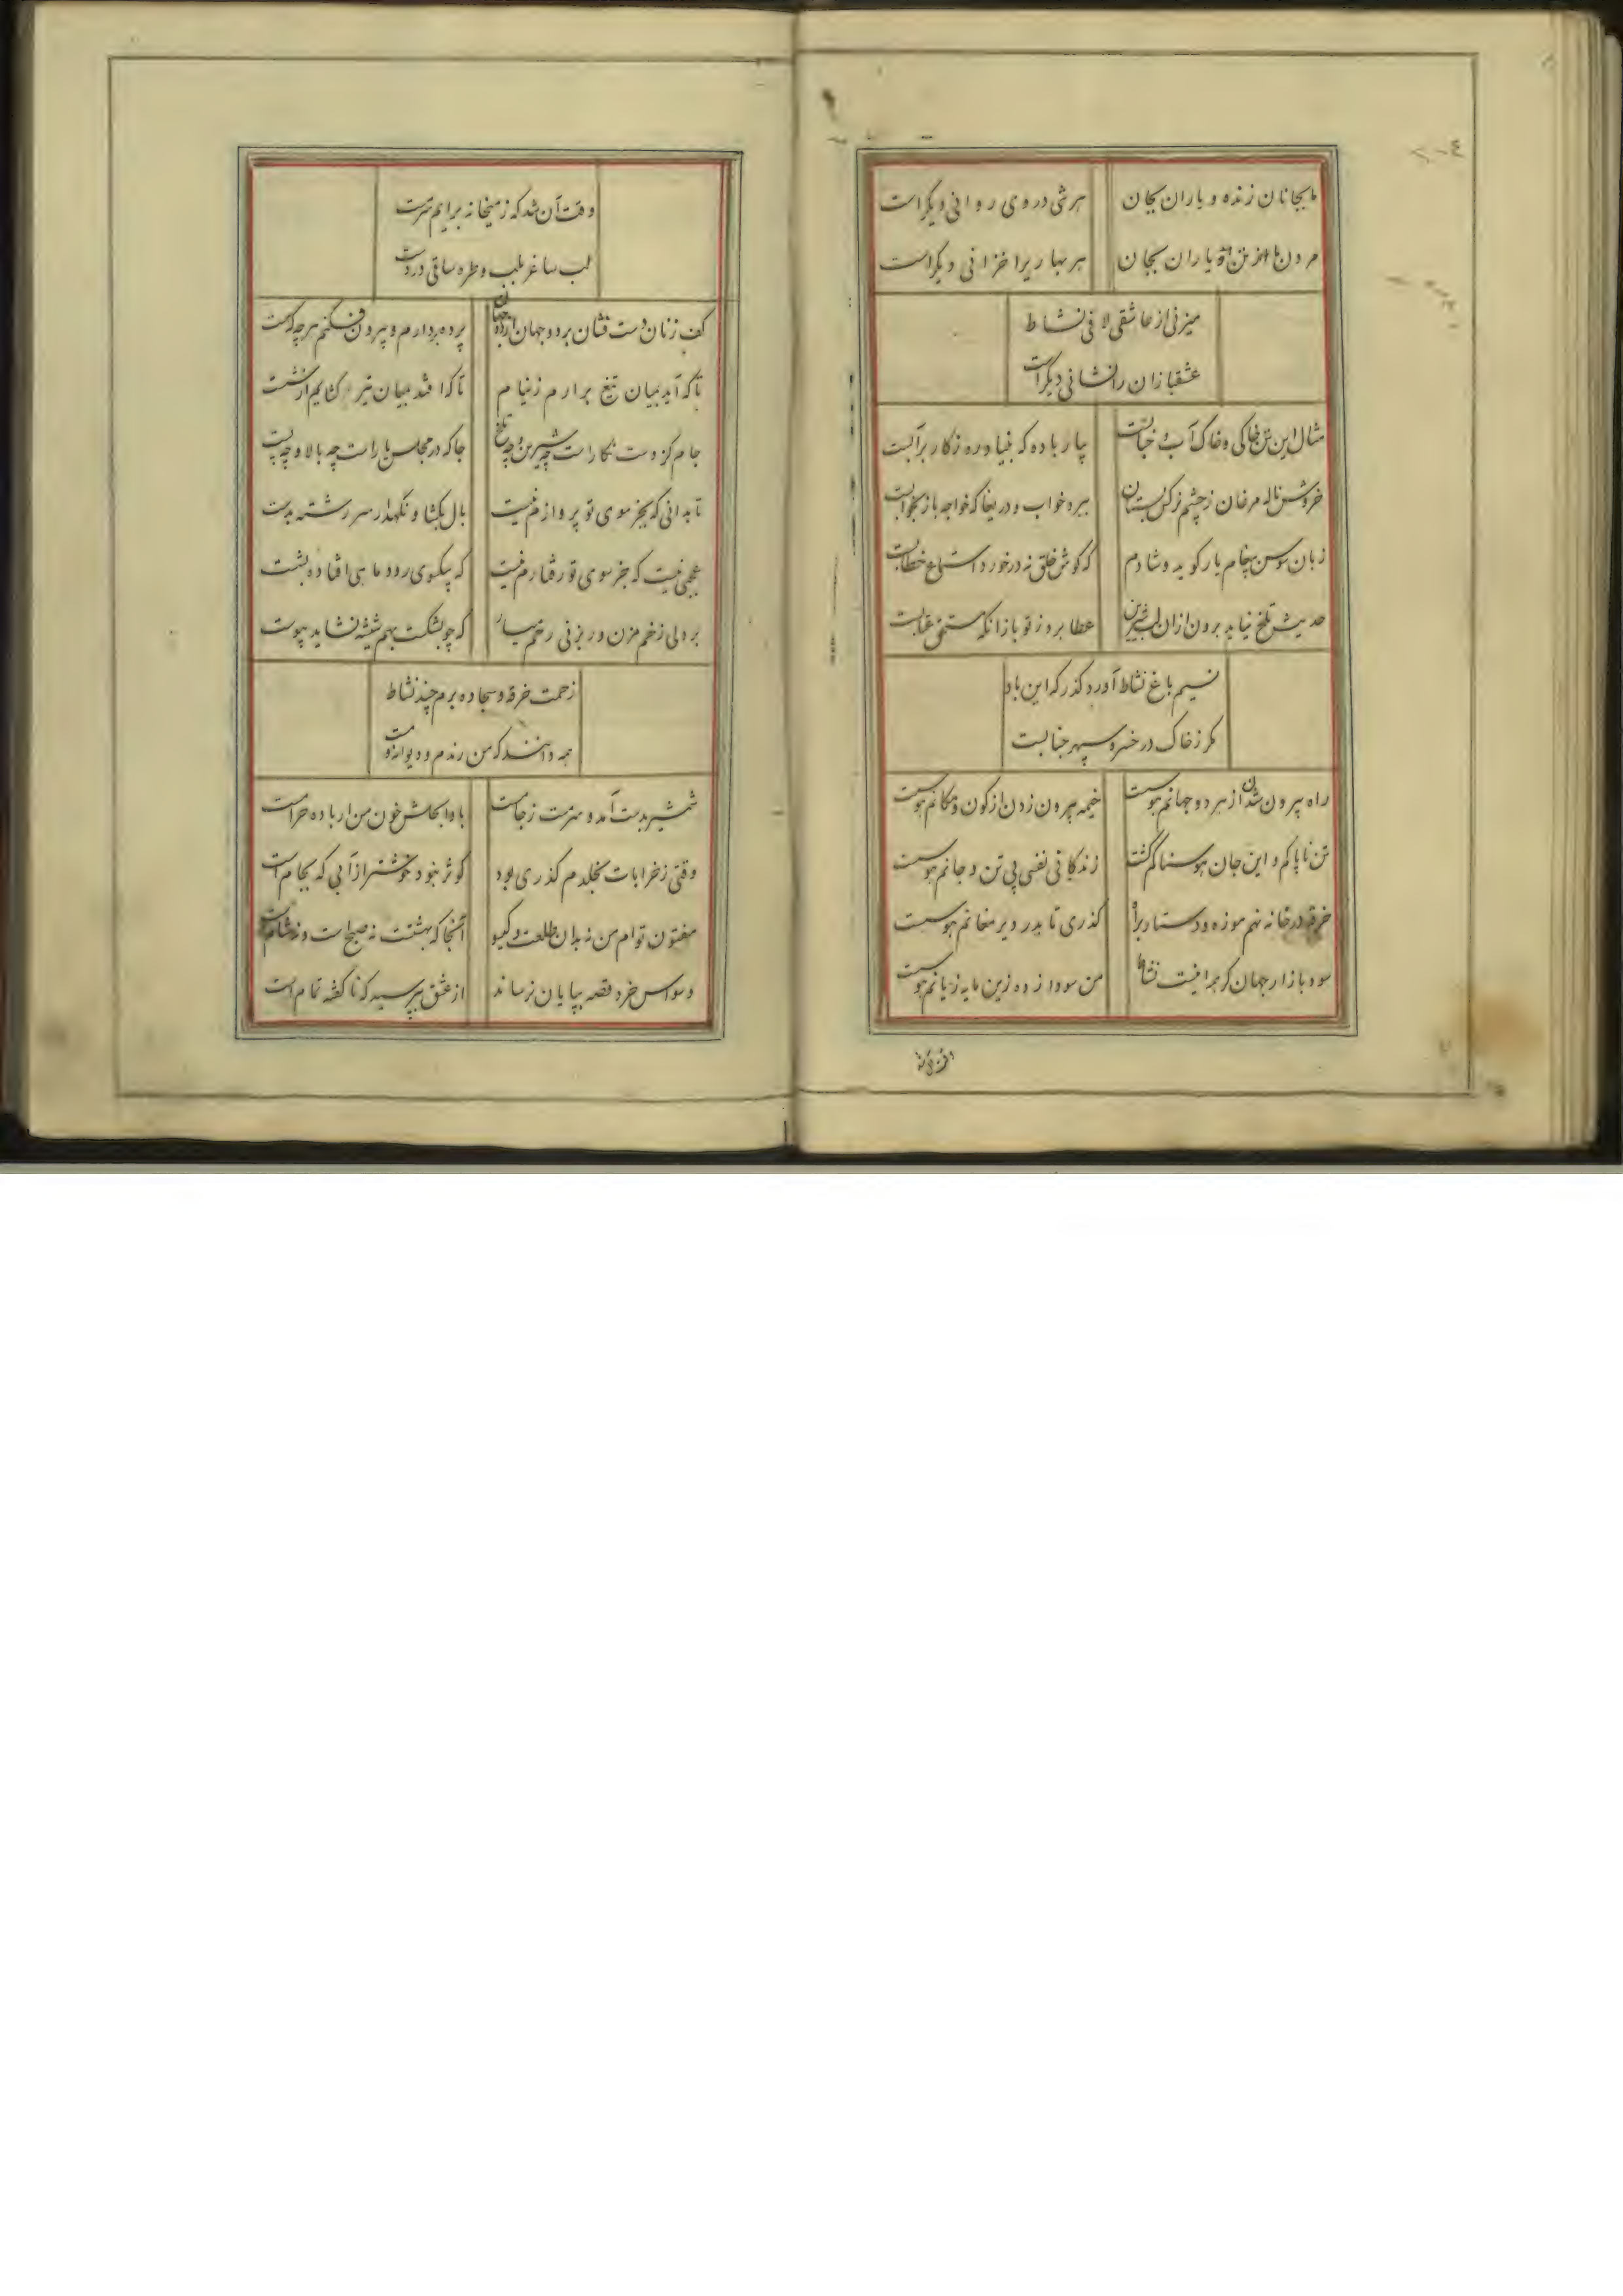 ما بجانان زنده و یاران بجان هر شی در وی روانی دیگر است
یاران بجان هر بهاریرا خزانی دیگر است
میزنی از عاشقی لافی نشاط
عشقبازان را نشانی دیگر است
مثال این تن خاکی و خاک آب و بیار باده که بنیاد
خروش ناله مرغان ز چشم نرکس بستان ببرد خواب و دریغا که خواجه باز بخوابست
زبان سوسن پیغام یار کوید و شادم که کوش خلق نه در خورد استماع خطابست
حدیث تلخ نیاید برون از ان لب شیرین عطا بر و ز تو باز انکه مستحق عتابست
نسیم باغ نشاط آورد کذر که این باد
مکر ز خاک در خسرو سپهر جنابست
راه بیرون شدن از هر دو جهانم هوست خیمه بیرون زدن از کون و مکانم هوست
تن ناپاکم و این جان هوسناکم کشت زندکانی نفسی بی تن و جانم هوست
خرقه در خانه نهم موزه و دستار براه کذری تا بدر دیر مغانم هوست
سود بازار جهان کر همه اینست نشاط من سودا زده زین مایه زیانم هوست
وقت آن شد که ز میخانه برایم سرمست
لب ساغر بلب و طره ساقی در دست
کف زنان دست فشان بر دو جهان پرده بردارم و بیرون فکنم هر چه که هست
تا که آید بمیان تیغ برارم ز نیام تا که افتد بمیان تیر کشایم از شست
جام کز دست نکار است چه شیرین و چه تلخ جا که در مجلس یار است چه بالا و چه پست
تا بدانی که بجز سوی تو پروازم نیست بال بکشا و نکهدار سر رشته بدست
عجبی نیست که جز سوی تو رفتارم نیست که بیکسوی رود ماهی افتاده بشست
بر دلی زخم مزن ور بزنی رخم میار که چو بشکست بهم شیشه نشاید پیوست
زحمت خرقه و سجاده برم چند نشاط
همه دانند که من رندم و دیوانه و مست
شمشیر بدست آمد و سرمست ز جامست باده ابحلش خون من ار باده حرامست
وقتی ز خرابات بخلدم کذری بود کوثر نبود خوشتر از آبی که بجام است
مفتون توام من نه بدان طلعت و کیسو آنجا که بهشتست نه صبح است و نه شامست
وسواس خرد قصه بپایان نرساند از عشق بپرسید که ناکفته تمام است